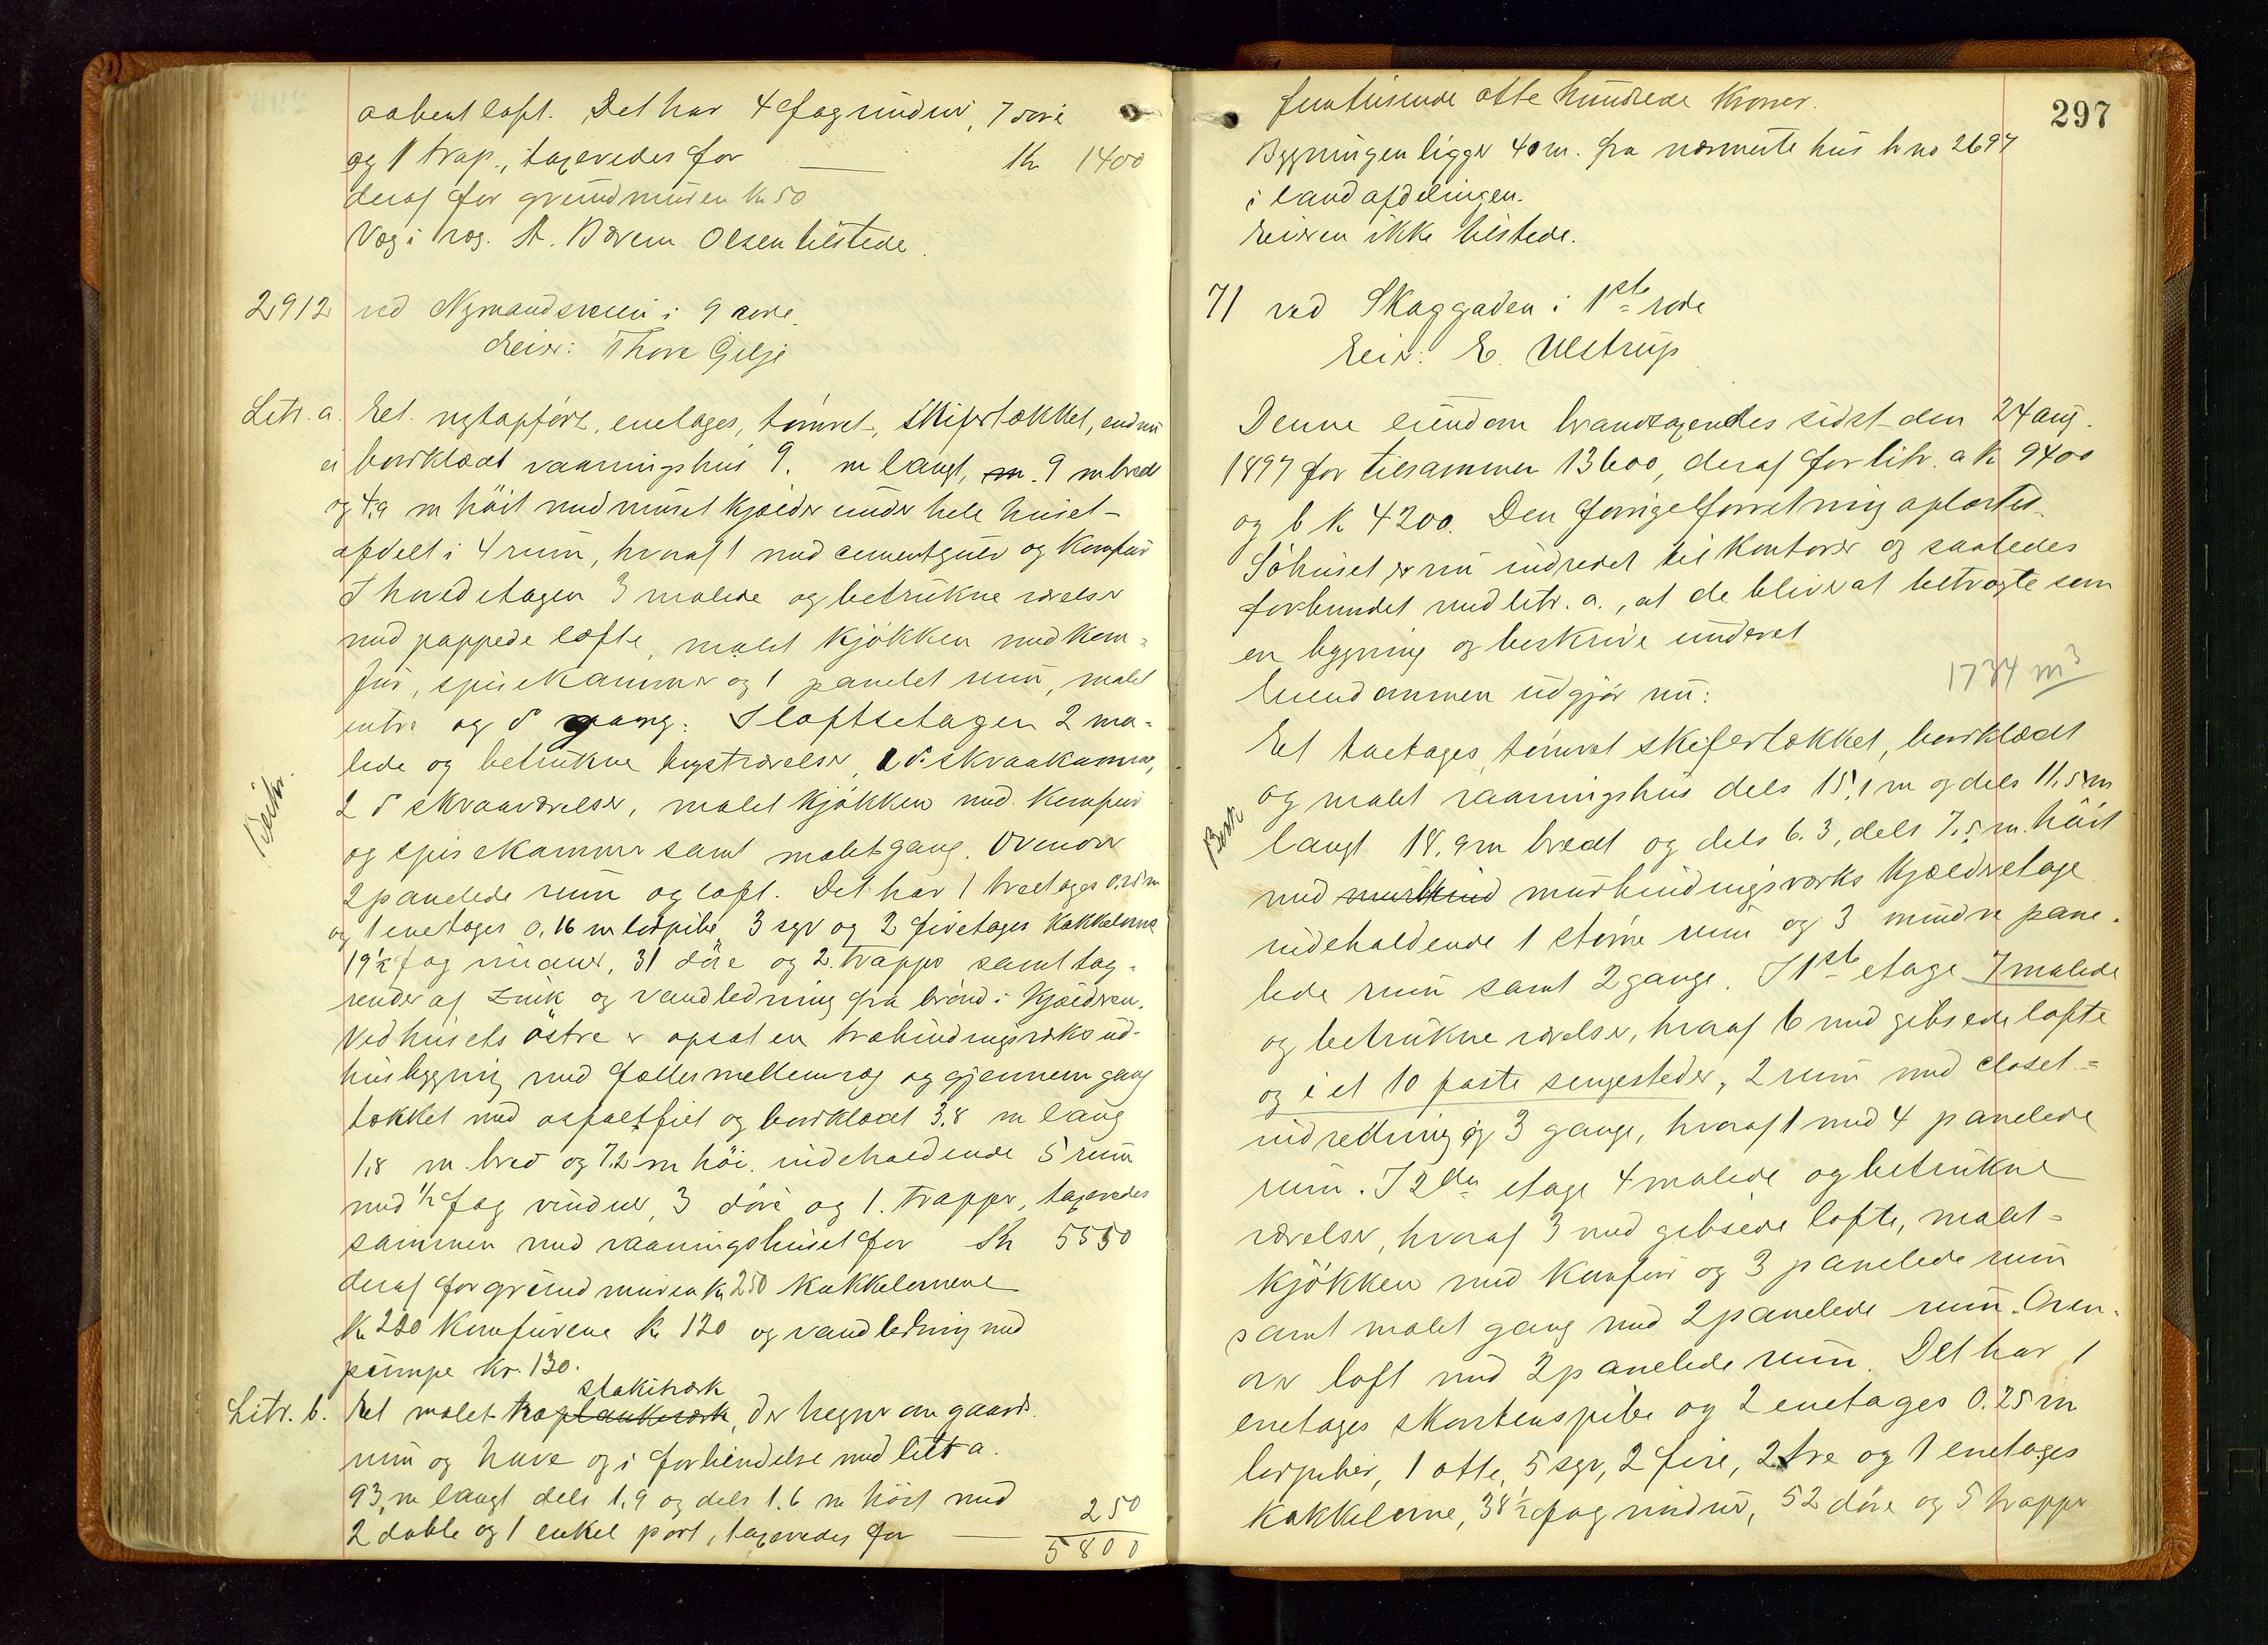 aabent loft. Det har 4 fag vinduer, 7 döre
og 1 trap., taxeredes for — Kr 1400
deraf for grundmuren Kr 50
Væg i væg. St. Olsen tilstede.
2912 ved Nymandsveien i 9 rode.
Eier: Thore Gilje
Litr. a. Et nytopfört, enetages, tömret, skifertækket, endnu
ei bordklædt vaaningshus 9. m langt, 9 m bredt
og 4,9 m höit med muret kjælder under hele huset
afdelt i 4 rum, hvoraf 1 med cementgulv og komfur
I hovedetagen 3 malede og betrukne værelser
med pappede lofte, malet kjökken med kom-
fur, spisekammer og 1 panelet rum, malet
entre og do gang. I loftsetagen 2 ma-
lede og betrukne kvistværelser, 2 do skraakammer,
2 do skraaværelser, malet kjökken med komfur
og spisekammer samt malet gang. Ovenover
2 panelede rum og loft. Det har 1 treetages 0.25 m
og 1 enetages 0,16 m lerpibe, 3 syv og 2 fireetages kakkelovne
19½ fag vinduer, 31 döre og 2 trapper samt tag-
render af zink og vandledning fra brönd i kjælderen.
Ved husets östre er opsat en træbindingsværks ud-
husbygning med fælles mellemvæg og gjennemgang
tækket med asfaltfilt og bordklædt 3,8 m lang
1,8 m bred og 7,2 m höi, indeholdende 5 rum
med ½ fag vinduer, 3 döre og 1 trapper, taxeredes
sammen med vaaningshuset for Kr 5550
deraf for grundmuren Kr 250 kakkelovnene
Kr 220 komfurene Kr 120 og vandledning med
pumpe Kr. 130.
stakitværk
Litr. b. Et malet træplankeværk, der hegner om gaards-
rum og have og i forbindelse med litr a.
93 m langt dels 1,9 og dels 1.6 m höit med
2 doble og 1 enkel port, taxeredes for — 250
5800
297
femtusende otte hundrede Kroner.
Bygningen ligger 40 m. fra nærmeste hus br no 2697
i landafdelingen.
Eieren ikke tilstede.
71 ved Skaggaden i 1ste rode
Eier: E. Ulstrup
Denne eiendom brandtaxeredes sidst den 24 aug.
1897 for tilsammen 13600, deraf for litr. a K 9400
og b K 4200. Den forrige forretning oplæstes.
Söhuset er nu indredet til kontorer og saaledes
forbundet med litr. a., at de bliver at betragte som
en bygning og beskrive underet
Eiendommen udgjör nu:
1734 m³
Et toetages, tömret skifertækket, bordklædt
og malet vaaningshus dels 15,1 m og dels 11,5 m
langt 18,9 m bredt og dels 6.3, dels 7,5 m. höit
med murbindingsværks kjælderetage
indeholdende 1 större rum og 3 mindre pane-
lede rum samt 2 gange. I 1ste etage 7 malede
og betrukne værelser, hvoraf 6 med gibsede lofte
og i et 10 faste sengesteder, 2 rum med closet-
indretning og 3 gange, hvoraf 1 med 4 panelede
rum. I 2den etage 4 malede og betrukne
værelser, hvoraf 3 med gibsede lofte, malet
kjökken med komfur og 3 panelede rum
samt malet gang med 2 panelede rum. Oven-
over loft med 2 panelede rum. Det har 1
enetages skorstenspibe og 2 enetages 0.25 m
lerpiber, 1 otte, 5 syv, 2 fire, 2 tre og 1 enetages
kakkelovne, 38½ fag vinduer, 52 döre og 5 trapper